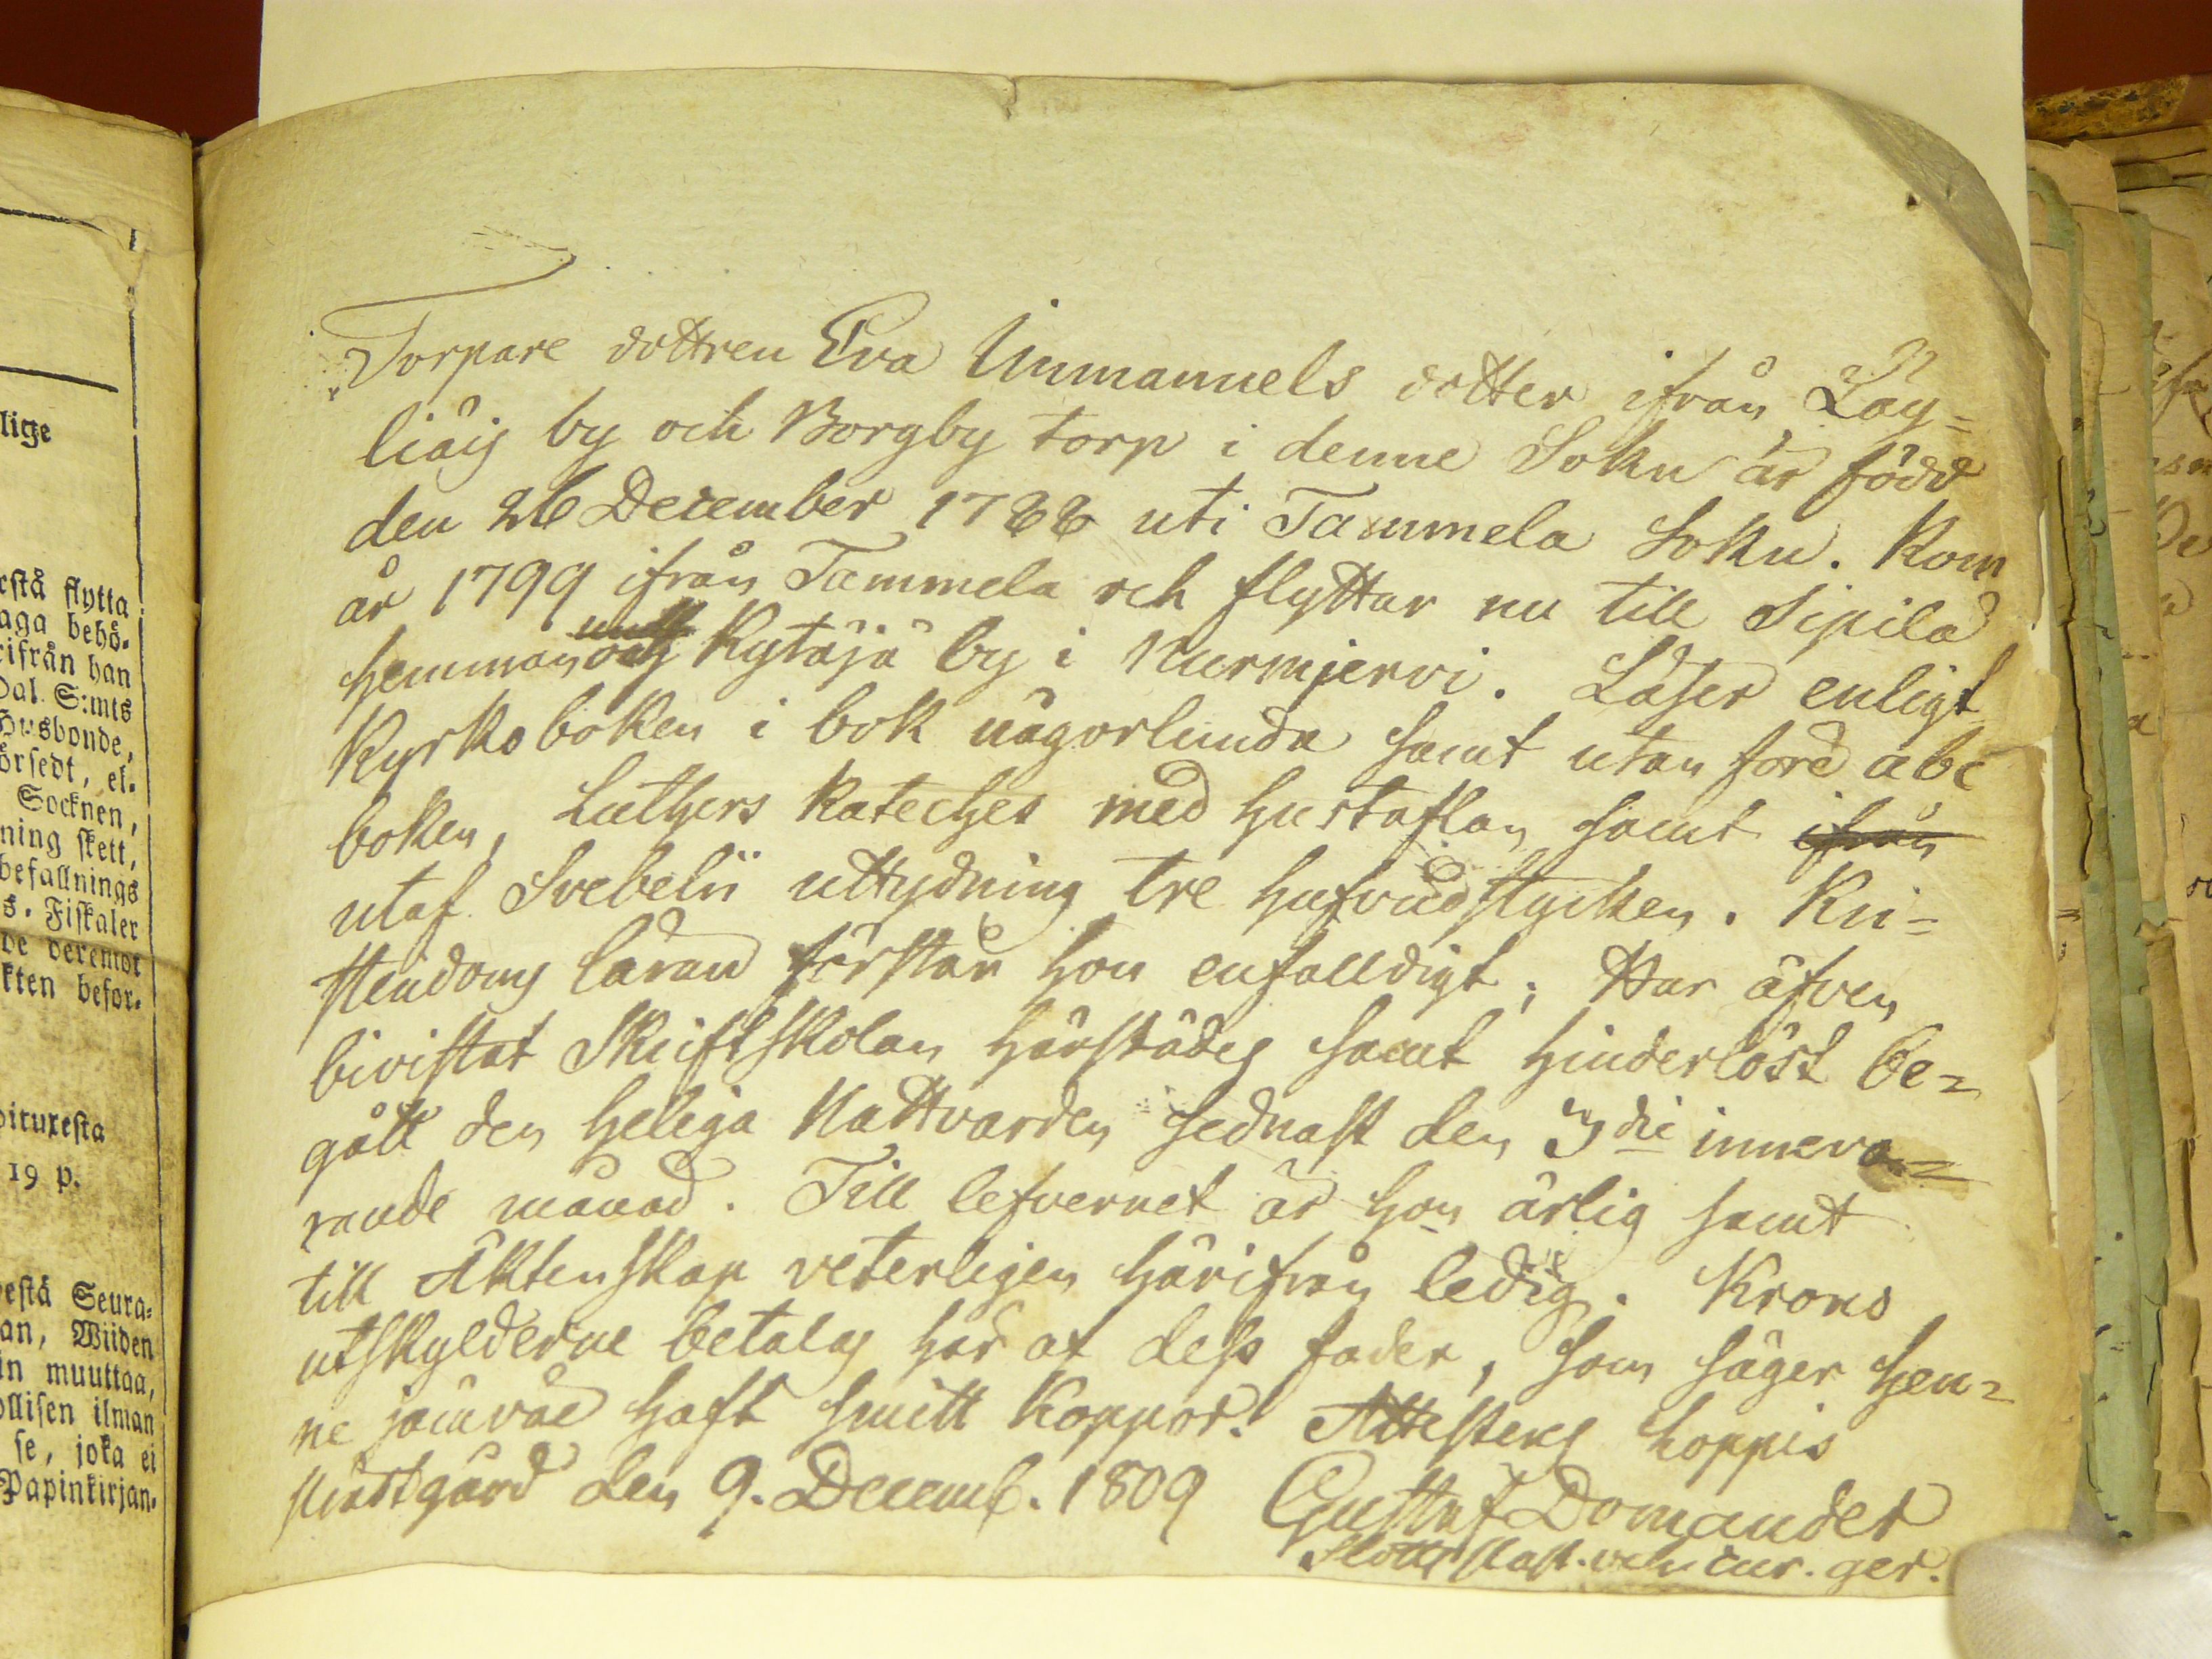 lige
estå flytta
aga behö-
rifrån han
Dal. S:mts
Husbonde,
örsedt, el-
Socknen,
ning skett,
befallnings
s. Fiskaler
de deremot
kten befor-
19 p.
estä Seura-
an, Wiiden
in muuttaa,
ollisen ilman
se, joka ei
Papinkirjan-
Torpare dottren Eva Immanuels dotter ifrån Läy-
liäis by och Borgby torp i denne Sokn är född
den 26 December 1788 uti Tammela Sokn. Kom
år 1799 ifrån Tammela och flyttar nu till Sipilä
hemman och Kytäjä by i Nurmjervi. Läser enligt
Kyrkoboken i bok någorlunda samt utan före abc
boken, Luthers Kateches med hustaflan samt ifrån
utaf Svebelii uttydning tre hufvudstycken. Kri-
stendoms läran förstår hon enfalldigt; Har äfven
bivistat Skriftskolan härstädes samt hinderlöst be-
gått den heliga Nattvarden sednast den 3die inneva-
rande månad. Till lefvernet är hon ärlig samt
till Äktenskap veterligen härifrån ledig. Krono
utskylderne betalas här af dess fader, som säger hen-
ne jämväl haft smitt Koppor. Attesteras Loppis
Prästgård den 9. Decemb. 1809 Gustaf Domander
cur. ger.